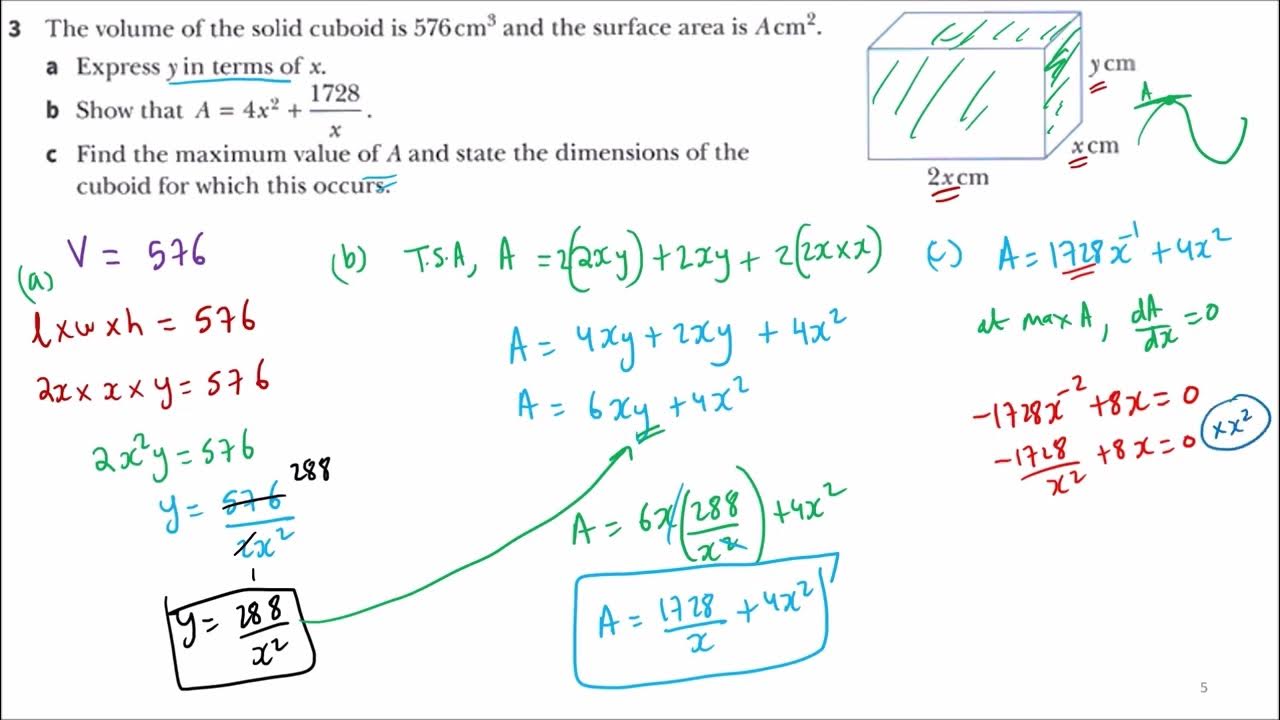 3 The volume of the solid cuboid is 576 cm³ and the surface area is A cm².
a Express y in terms of x.
b Show that A = 4x² + 1728/x.
c Find the maximum value of A and state the dimensions of the
cuboid for which this occurs.
y cm
x cm
2x cm
A
(a) V = 576
l x w x h = 576
2x x x x y = 576
2x²y = 576
y = 576/2x² 288 1
y = 288/x²
(b) T.S.A, A = 2(2xy) + 2xy + 2(2x x x)
A = 4xy + 2xy + 4x²
A = 6xy + 4x²
A = 6x(288/x²) + 4x²
A = 1728/x + 4x²
(c) A = 1728x⁻¹ + 4x²
at max A, dA/dx = 0
-1728x⁻² + 8x = 0
-1728/x² + 8x = 0
x x²
5